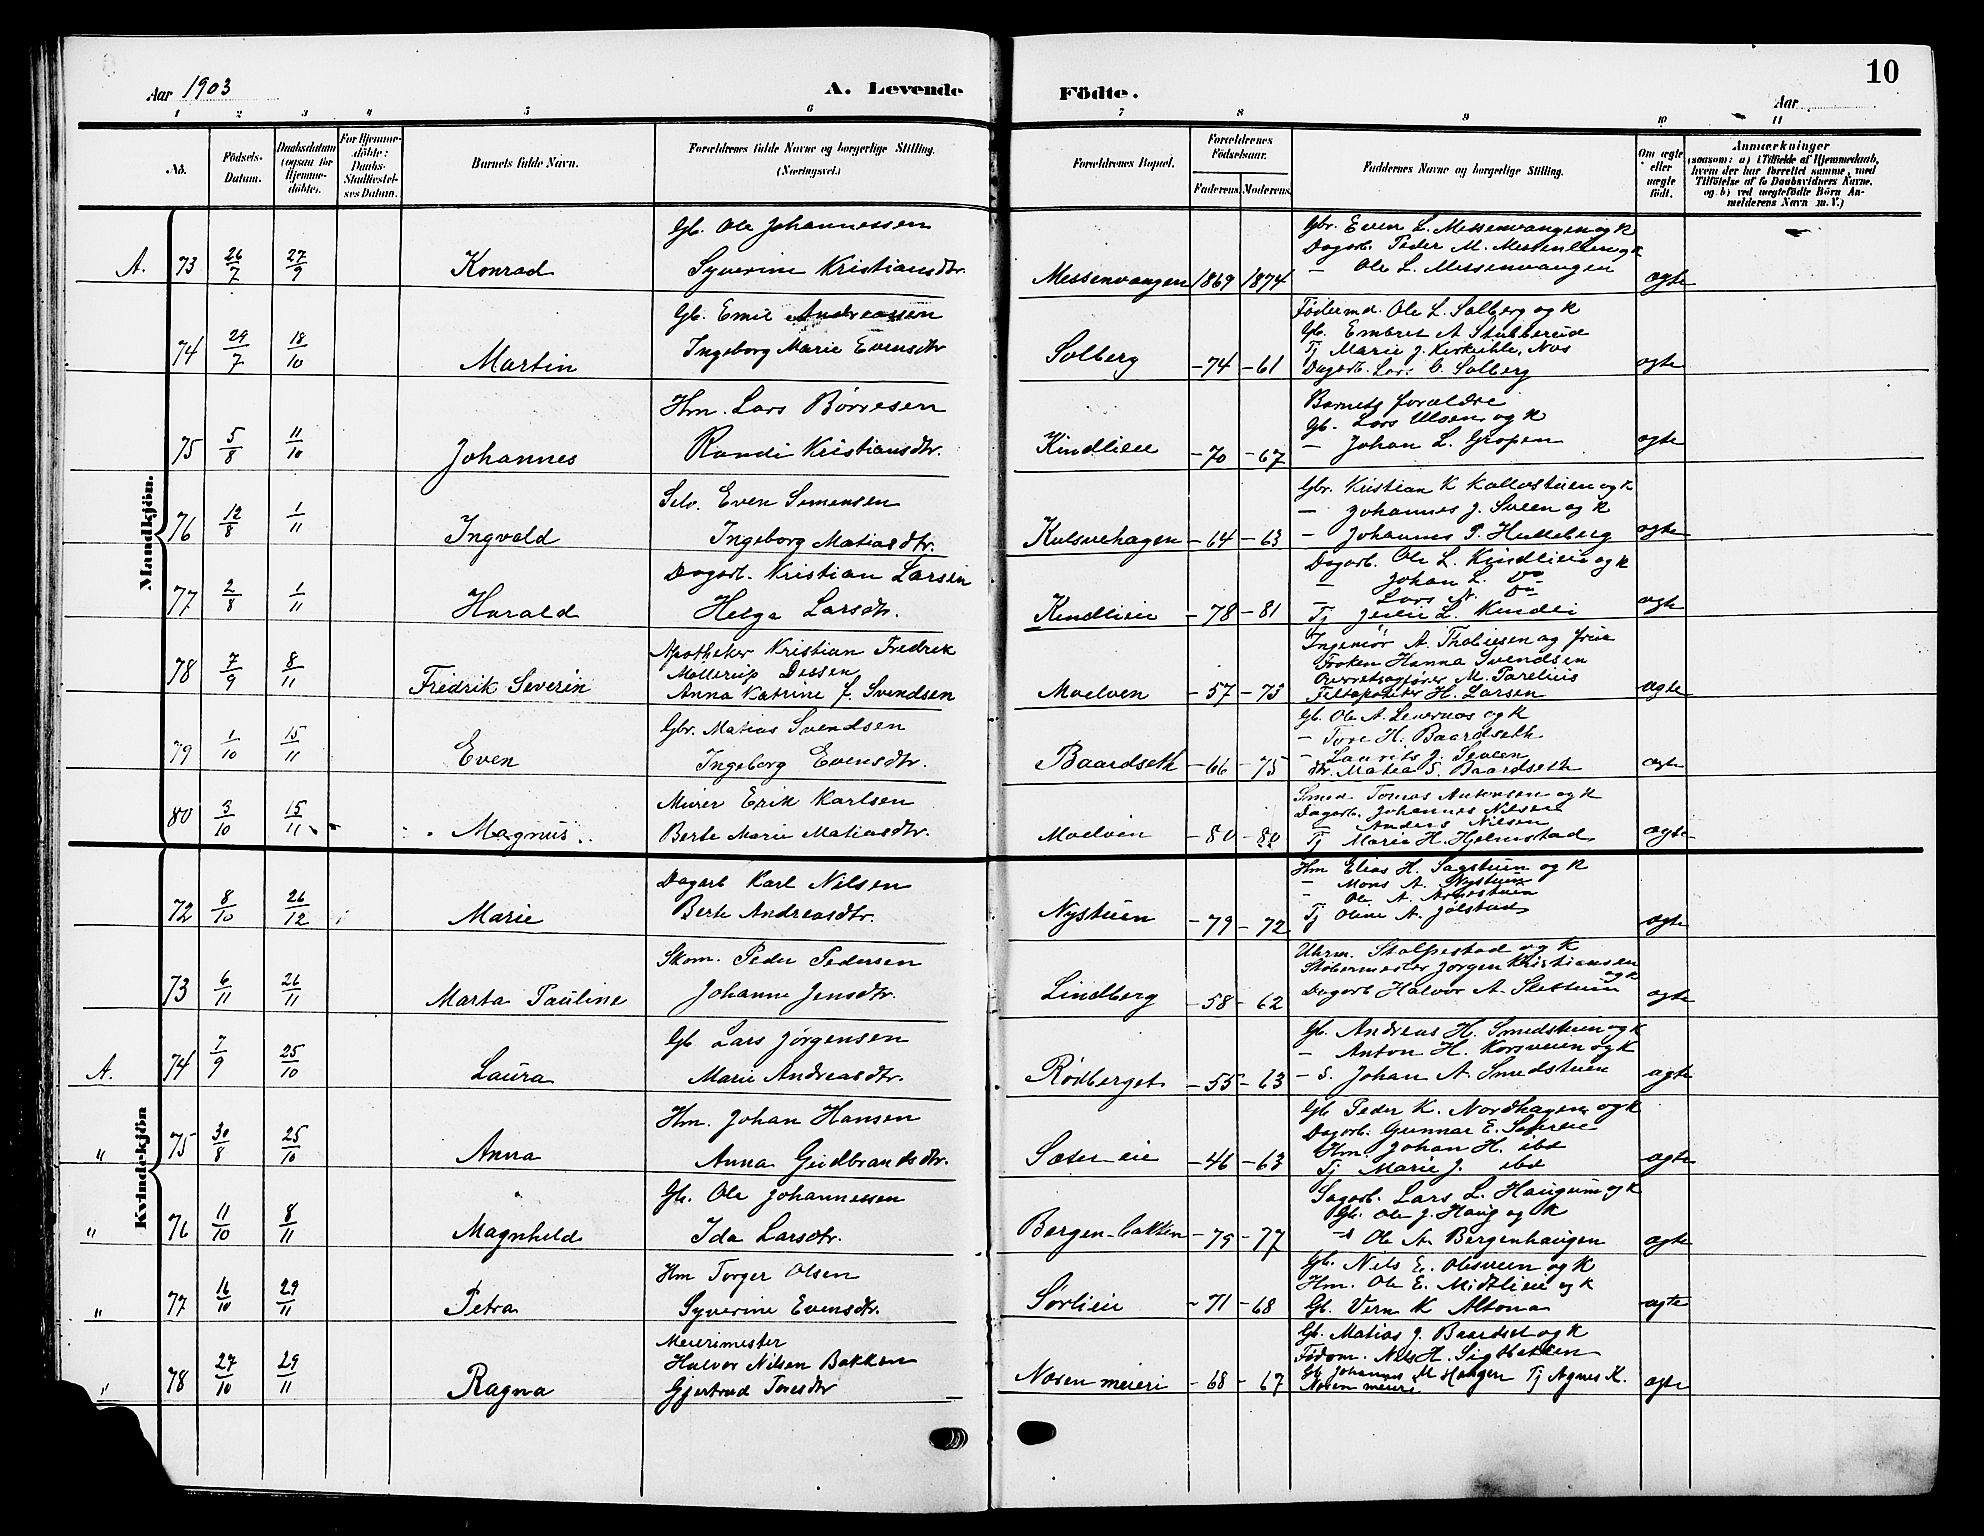 Aar 1903
A. Levende
Födte.
Aar
10
1 2 3 4 5 6 7 8 9 10 11
No.
Födsels-
Datum.
Daabsdatum
(ogsaa for
Hjemme-
döbte).
For Hjemme-
döbte:
Daabs-
Stadfæstel-
ses Datum.
Barnets fulde Navn.
Forældrenes fulde Navne og borgerlige Stilling.
(Næringsvei.)
Forældrenes Bopæl.
Forældrenes
Födselsaar.
Faderens. Moderens.
Faddernes Navne og borgerlige Stilling.
Om ægte
eller
uægte
födt.
Anmærkninger
(saasom: a) i Tilfælde af Hjemmedaab,
hvem der har forrettet samme, med
Tilföielse af to Daabsvidners Navne,
og b) ved uægtefödte Börn An-
melderens Navn m. V.)
Mandkjön.
A. 73 26/7 27/9 Konrad
Gb. Ole Johannessen
Syverine Kristiansdtr.
Messenvangen 1869 1874
Gbr. Even L. Messenvangen og K
Dagarb. Peder M. Messenlien og K
– Ole L. Messenvangen
ægte
74 29/7 18/10 Martin
Gb. Emil Andreassen
Ingeborg Marie Evensdtr
Solberg –74 –61
Födermd. Ole L. Solberg og K
Gb. Embret A Stubberud
Tj Marie J. Kirkuhle, Nos
Dagarb. Lars O. Solberg
ægte
75 5/8 11/10 Johannes
Hm. Lars Börresen
Randi Kristiansdtr.
Kindlien –70 –67
Barnets forældre
Gb. Lars Ulven og K
– Johan L. Gropen
ægte
76 12/8 1/11 Ingvald
Selv. Even Simensen
Ingeborg Matiasdtr.
Kulsvehagen –64 –63
Gbr. Kristian K Kallostuen og K
– Johannes J. Sveen og K
– Johannes P. Hulleberg
ægte
77 2/8 1/11 Harald
Dagarb. Kristian Larsen
Helga Larsdtr.
Kindlien –78 –81
Dagarb. Ole L. Kindlien og K
– Johan L. Do
– Lars N. Do
Tj Julie L. Kindli
ægte
78 7/9 8/11 Fredrik Severin
Apotheker Kristian Fredrik
Möllerup Dessen
Anna Katrine f. Svendsen
Moelven –57 –75
Ingeniör A. Thalesen og frue
Fröken Hanna Svendsen
Overretssagförer M. Parelius
Filtapoteker H. Larsen
ægte
79 1/10 15/11 Even
Gbr. Matias Svendsen
Ingeborg Evensdtr.
Baardseth –66 –75
Gb. Ole A. Levernæs og K
– Tore H. Baardseth
– Laurits J. Sveen
Dtr. Matea S. Baardseth
ægte
80 3/10 15/11 Magnus
Murer Erik Karlsen
Berte Marie Matiasdtr.
Moelven –80 –80
Smed. Tomas Antonsen og K
Dagarb. Johannes Nilsen
– Anders Nilsen
Tj Marie H. Hjelmstad
ægte
Kvindekjön
72 8/10 26/12 Marie
Dagarb Karl Nilsen
Berte Andreasdtr.
Nystuen –79 –72
Hm Elias H. Sagstuen og K
– Mons A. Nystuen
– Ole A. Arnestuen
Tj Oline A. Jölstad
ægte
73 6/11 26/11 Marta Pauline
Skom. Peder Pedersen
Johanne Jensdtr.
Lindberg –58 –62
Uhrm. Stolpestad og K
Stöbermester Jörgen Kristiansen
og K
Dagarb Halvor A. Slettuen
ægte
A. 74 7/9 25/10 Laura
Gb Lars Jörgensen
Marie Andreasdtr.
Rödberget –55 –63
Gb. Andreas H. Smedstuen og K
– Anton H. Korsveien og K
– S. Johan A Smedstuen
ægte
" 75 30/8 25/10 Anna
Hm. Johan Hansen
Anna Gudbrandsdtr.
Sæterseie –46 –63
Gb Peder K. Nordhagen og K
Dagarb. Gunnar E.
Hm. Johan H. ibd
Tj Marie J. ibd
ægte
" 76 11/10 8/11 Magnhild
Gb. Ole Johannessen
Ida Larsdtr.
Bergen-bakken –79 –77
Sagarb. Lars L. Haugum og K
Gb. Ole J. Haug og K
–s Ole A. Bergenhaugen
ægte
" 77 16/10 29/11 Petra
Hm Torger Olsen
Syverine Evensdtr.
Sörlien –71 –68
Gb. Nils E. Olsveen og K
Hm. Ole E. Midtlien og K
Gb. Vern K Altona
ægte
" 78 27/10 29/11 Ragna
Meierimester
Halvor Nilsen Bakken
Gjertrud Toresdtr
Næsen meieri –68 –67
Gb. Matias J. Baardset og K
Födom. Nils H. Sigtbakken
Gb Johannes M Haugen Tj Agnes K.
Næsen meieri
ægte